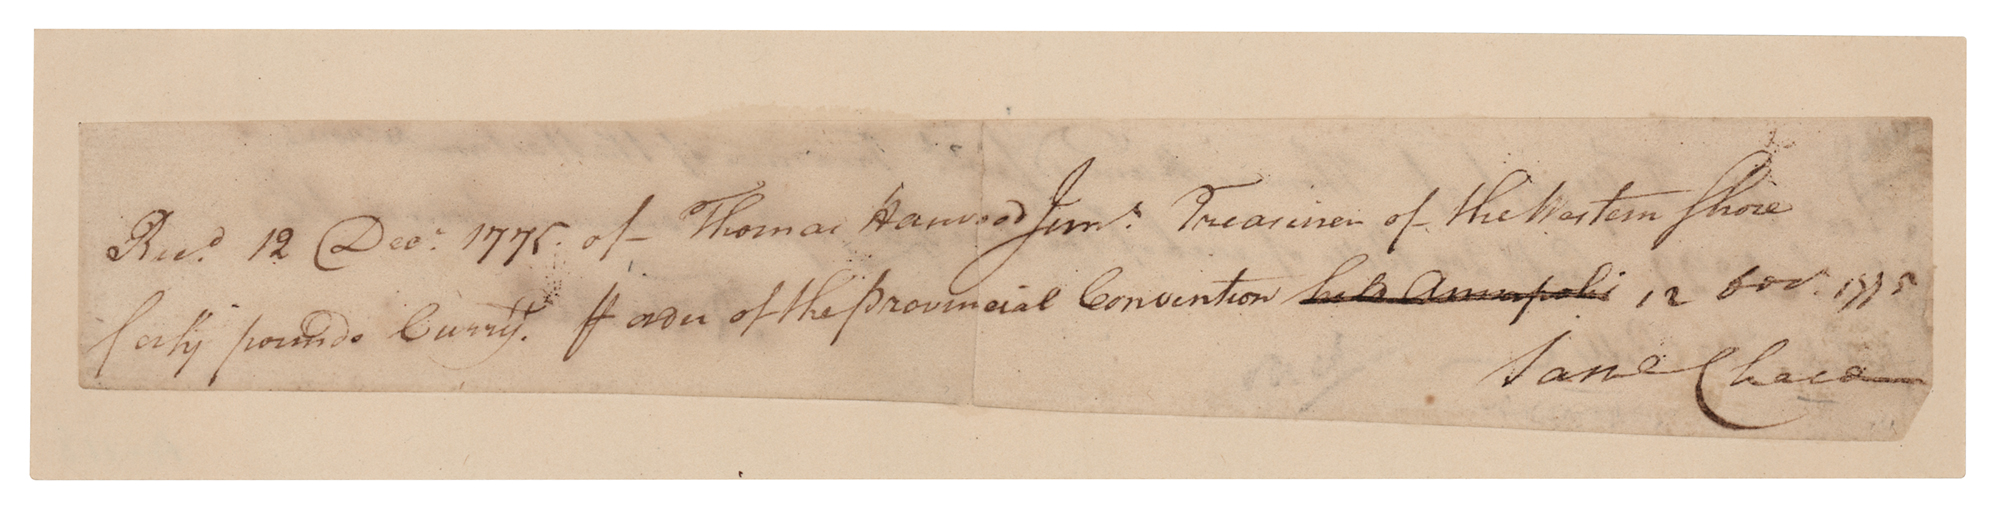 Recd. 12 Decr. 1775. of Thomas Harwood Junr. Treasurer of the Western Shore
forty pounds Curry. order of the Provincial Convention held Annapolis 12 1775
Chace